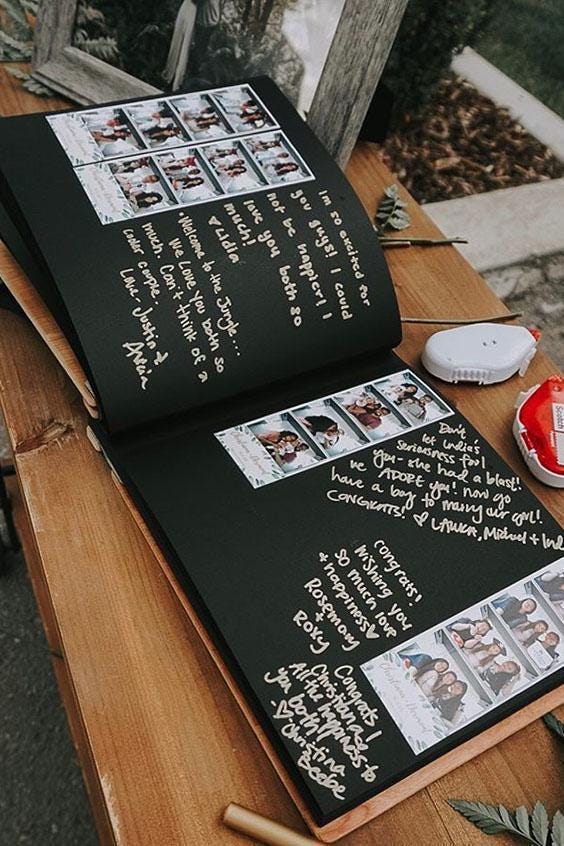 im so excited for
you guys! I could
not be happier! I
love you both so
much!
♥ Lidia
Welcome to the Jungle...
We Love you both so
much. Can't think of a
cooler couple.
Love Justin &
Don't
let India's
seriousness fool
you - she had a blast!
we ADORE you! now go
have a boy to marry our girl!
CONGRATS! ♡ LAURA, Michael + Ind
congrats!
Wishing you
so much love
+ happiness ♥
Rosemary
+
Roxy
Congrats!
Christina &
All the happiness to
you both!
♡ Christina
Beebe
Scotch